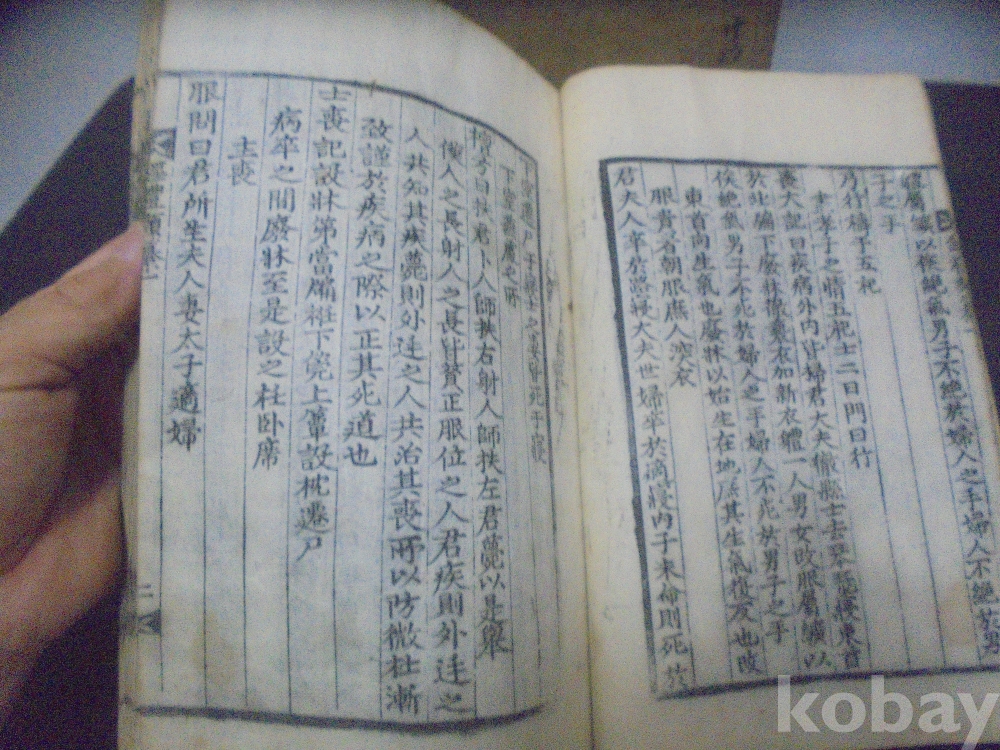 屬纊以俟絶氣男子不絶於婦人之手婦人不絶於男
子之手
乃行禱于五祀
士二日
喪大記曰疾病外內皆埽君大夫徹縣士去琴瑟寢東首
於北牖下廢牀徹褻衣加新衣體一人男女改服屬纊以
俟絶氣男子不死於婦人之手婦人不死於男子之手
東首向生氣也廢牀以始生在地庶其生氣復反也改
服貴者朝服庶人深衣
君夫人卒於路寢大夫世婦卒於適寢內子未命則死於
下室遷尸于寢士之妻皆死于寢
人師扶右射人師扶左君薨以是擧
僕人之長射人之長皆贊正服位之人君疾則外廷之
人共知其疾薨則外廷之人共治其喪所以防微杜漸
致謹於疾病之際以正其死道也
士喪記設牀第當牖衽下莞上簟設枕遷尸
病卒之間廢牀至是設之杜臥席
主喪
服問曰君所主夫人妻太子適婦
二
kobay